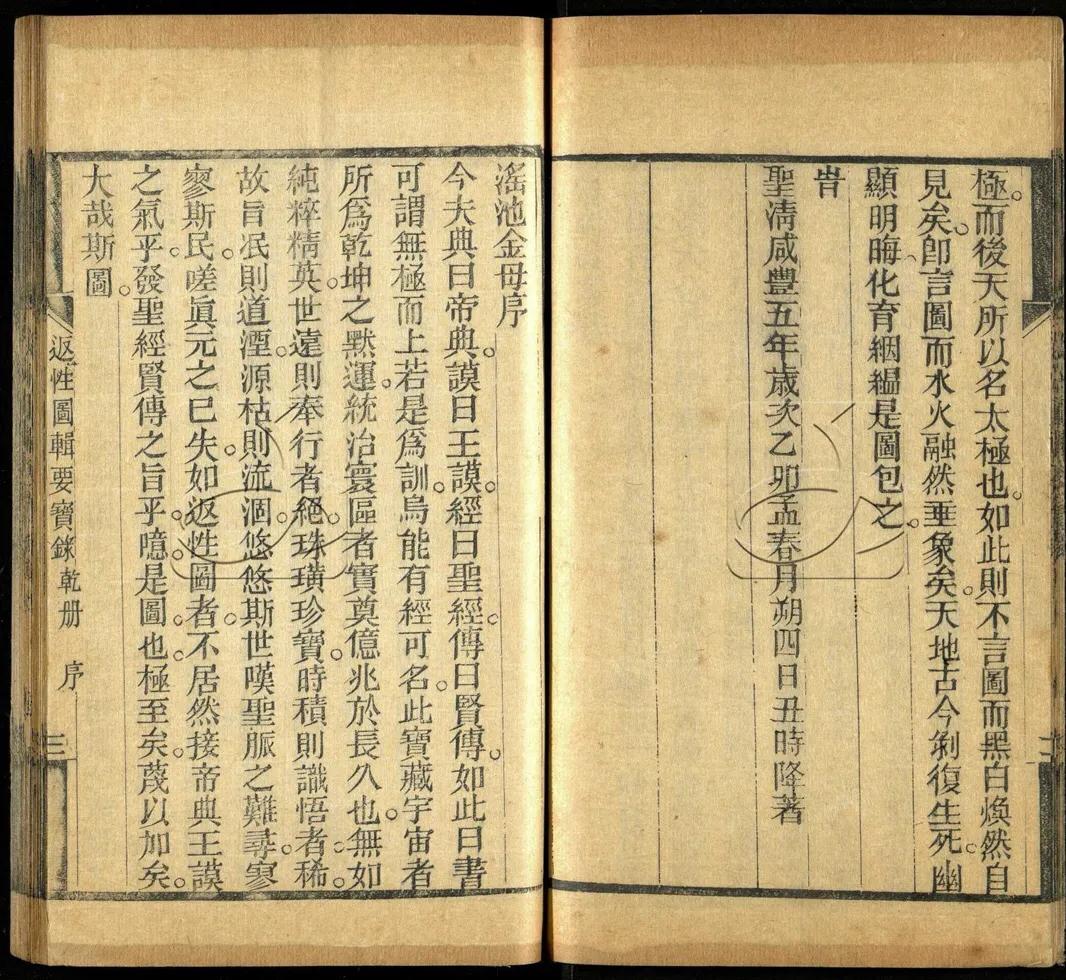 極。而後天所以名太極也。如此則不言圖而黑白煥然自
見矣。卽言圖而水火融然垂象矣。天地古今剝復生死。幽
顯明晦化育絪縕是圖包之。
旹
聖清咸豐五年歲次乙卯孟春月朔四日丑時降著
二
瑤池金母序
今夫典曰帝典。謨曰王謨。經曰聖經。傳曰賢傳。如此曰書
可謂無極而上。若是爲訓。烏能有經可名。此寶藏宇宙者
所爲乾坤之默運。統治寰區者實奠億兆於長久也。無如
純粹精英。世遠則奉行者絕。珠璜珍寶。時積則識悟者稀。
故旨冺則道湮。源枯則流涸。悠悠斯世嘆聖脈之難尋。寥
寥斯民。嗟眞元之巳失。如返性圖者。不居然接帝典王謨
之氣乎。發聖經賢傳之旨乎。噫。是圖也。極至矣。蔑以加矣。
大哉斯圖。
返性圖輯要寶錄 乾册 序 三